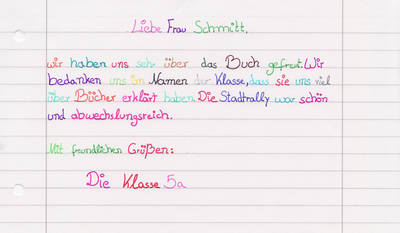 Liebe Frau Schmitt,
wir haben uns sehr über das Buch gefreut. Wir
bedanken uns im Namen der Klasse, dass sie uns viel
über Bücher erklärt haben. Die Stadtrally war schön
und abwechslungsreich.
Mit freundlichen Grüßen:
Die Klasse 5a